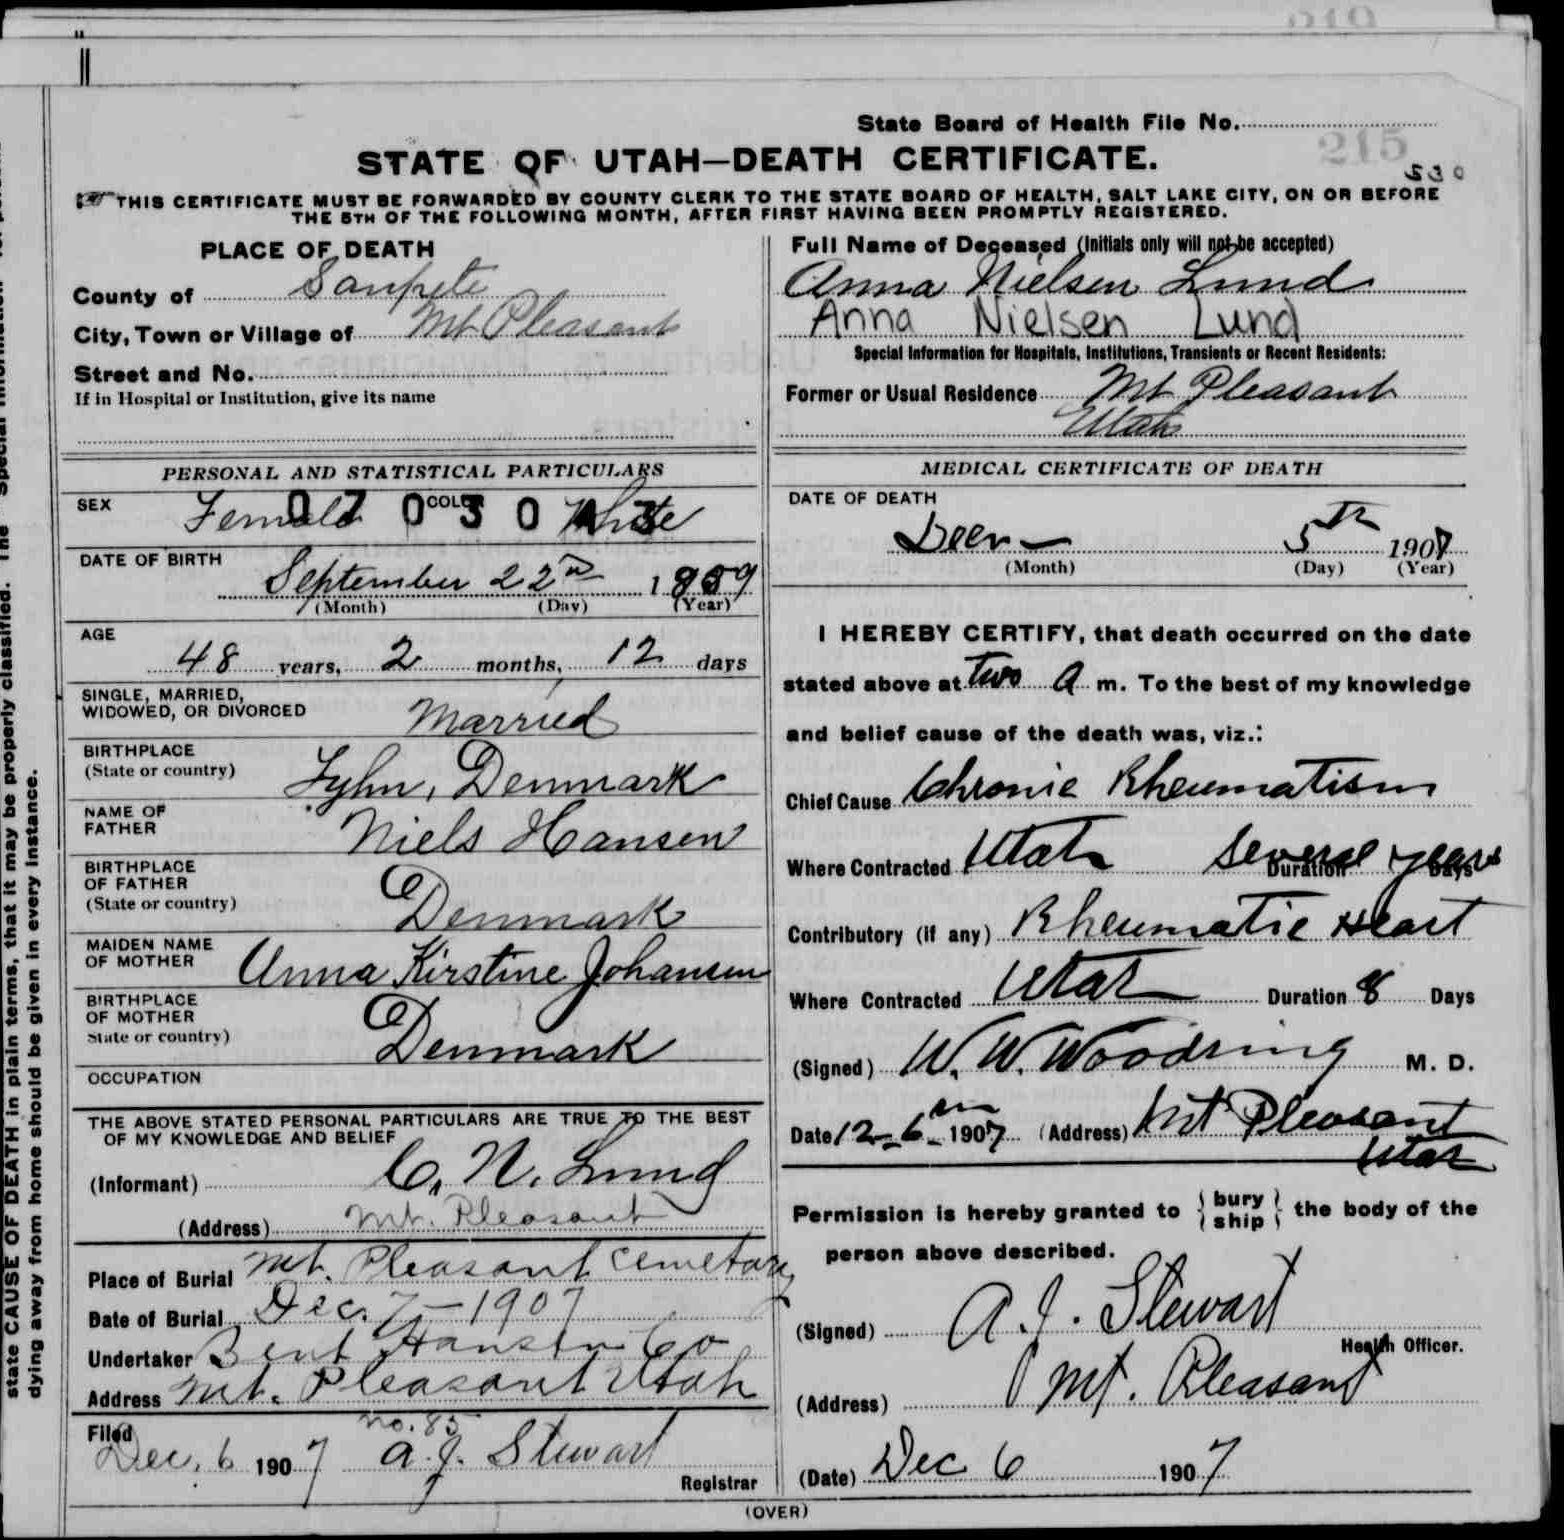 State Board of Health File No.
215
530
STATE OF UTAH—DEATH CERTIFICATE.
THIS CERTIFICATE MUST BE FORWARDED BY COUNTY CLERK TO THE STATE BOARD OF HEALTH, SALT LAKE CITY, ON OR BEFORE
THE 5TH OF THE FOLLOWING MONTH, AFTER FIRST HAVING BEEN PROMPTLY REGISTERED.
PLACE OF DEATH
County of Sanpete
City, Town or Village of Mt Pleasant
Street and No.
If in Hospital or Institution, give its name
Full Name of Deceased (Initials only will not be accepted)
Anna Nielsen Lund
Anna Nielsen Lund
Special Information for Hospitals, Institutions, Transients or Recent Residents:
Former or Usual Residence Mt Pleasant
Utah
PERSONAL AND STATISTICAL PARTICULARS
SEX Female COLOR White
DATE OF BIRTH
September 22nd 1859
(Month) (Day) (Year)
AGE
48 years, 2 months, 12 days
SINGLE, MARRIED,
WIDOWED, OR DIVORCED Married
BIRTHPLACE
(State or country) Fyhn, Denmark
NAME OF
FATHER Niels Hansen
BIRTHPLACE
OF FATHER
(State or country) Denmark
MAIDEN NAME
OF MOTHER Anna Kirstine Johansen
BIRTHPLACE
OF MOTHER
State or country) Denmark
OCCUPATION
THE ABOVE STATED PERSONAL PARTICULARS ARE TRUE TO THE BEST
OF MY KNOWLEDGE AND BELIEF
(Informant) C. N. Lund
(Address) Mt. Pleasant
Place of Burial Mt. Pleasant Cemetary
Date of Burial Dec. 7 - 1907
Undertaker Bent Hansen Co
Address Mt. Pleasant Utah
no. 85
Filed
Dec. 6 1907 A. J. Stewart
Registrar
MEDICAL CERTIFICATE OF DEATH
DATE OF DEATH
5th 1907
(Month) (Day) (Year)
I HEREBY CERTIFY, that death occurred on the date
stated above at two A m. To the best of my knowledge
and belief cause of the death was, viz.:
Chief Cause Chronic Rheumatism
Where Contracted Utah Duration several years Days
Contributory (if any) Rheumatic Heart
Where Contracted Utah Duration 8 Days
(Signed) W. W. Woodring M. D.
Date 12-6- 1907 (Address) Mt Pleasant
Utah
Permission is hereby granted to { bury ship } the body of the
person above described.
(Signed) A. J. Stewart
Health Officer.
(Address) Mt. Pleasant
(Date) Dec 6 1907
(OVER)
state CAUSE OF DEATH in plain terms, that it may be properly classified. The "Special Information"
dying away from home should be given in every instance.